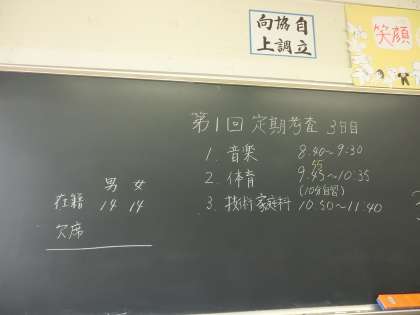 自立
協調
向上
笑顔
第1回 定期考査 3日目
1. 音楽 8.40〜9:30
55
2. 体育 9.45〜10:35
(10分自習)
3. 技術・家庭科 10.50〜11.40
男 女
在籍 14 14
欠席